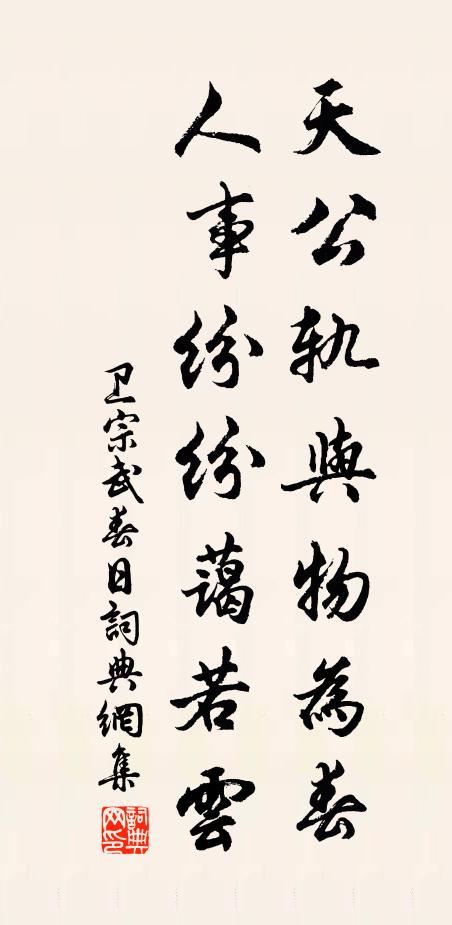 天公軌與物為春
人事紛紛藹若雲
卫宗武春日詞典網集
詞典網印